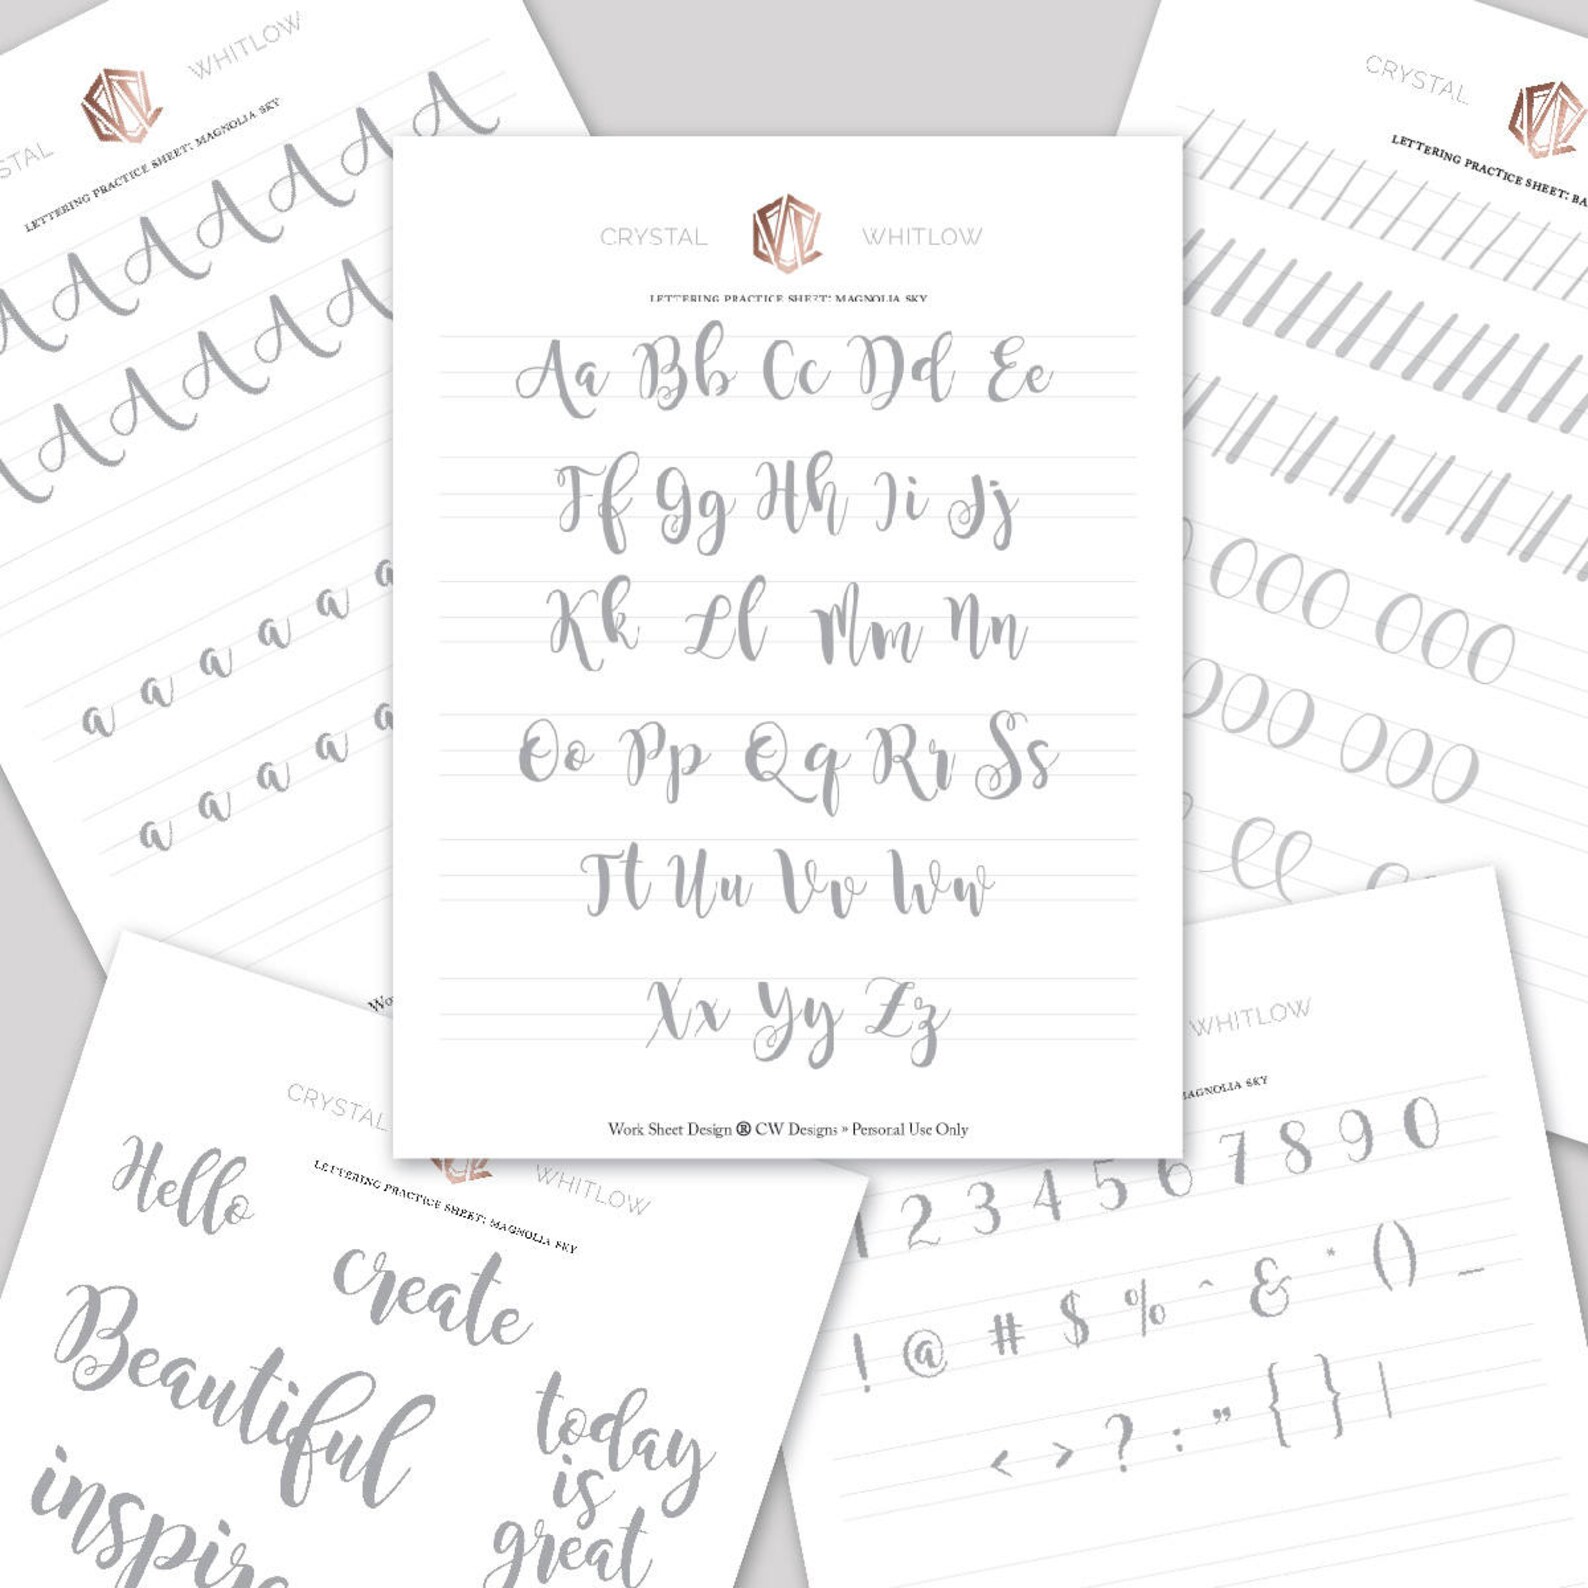 WHITLOW
LETTERING PRACTICE SHEET: MAGNOLIA SKY
A A A A A A A
A A A A A A
a a a a a a
a a a a a
CRYSTAL WHITLOW
LETTERING PRACTICE SHEET: MAGNOLIA SKY
Aa Bb Cc Dd Ee
Ff Gg Hh Ii Jj
Kk Ll Mm Nn
Oo Pp Qq Rr Ss
Tt Uu Vv Ww
Xx Yy Zz
Work Sheet Design ® CW Designs » Personal Use Only
CRYSTAL
LETTERING PRACTICE SHEET:
CRYSTAL WHITLOW
LETTERING PRACTICE SHEET: MAGNOLIA SKY
Hello
create
Beautiful
today
is
great
inspire
WHITLOW
MAGNOLIA SKY
1 2 3 4 5 6 7 8 9 0
! @ # $ % ^ & * ( ) _
< > ? : " { } |